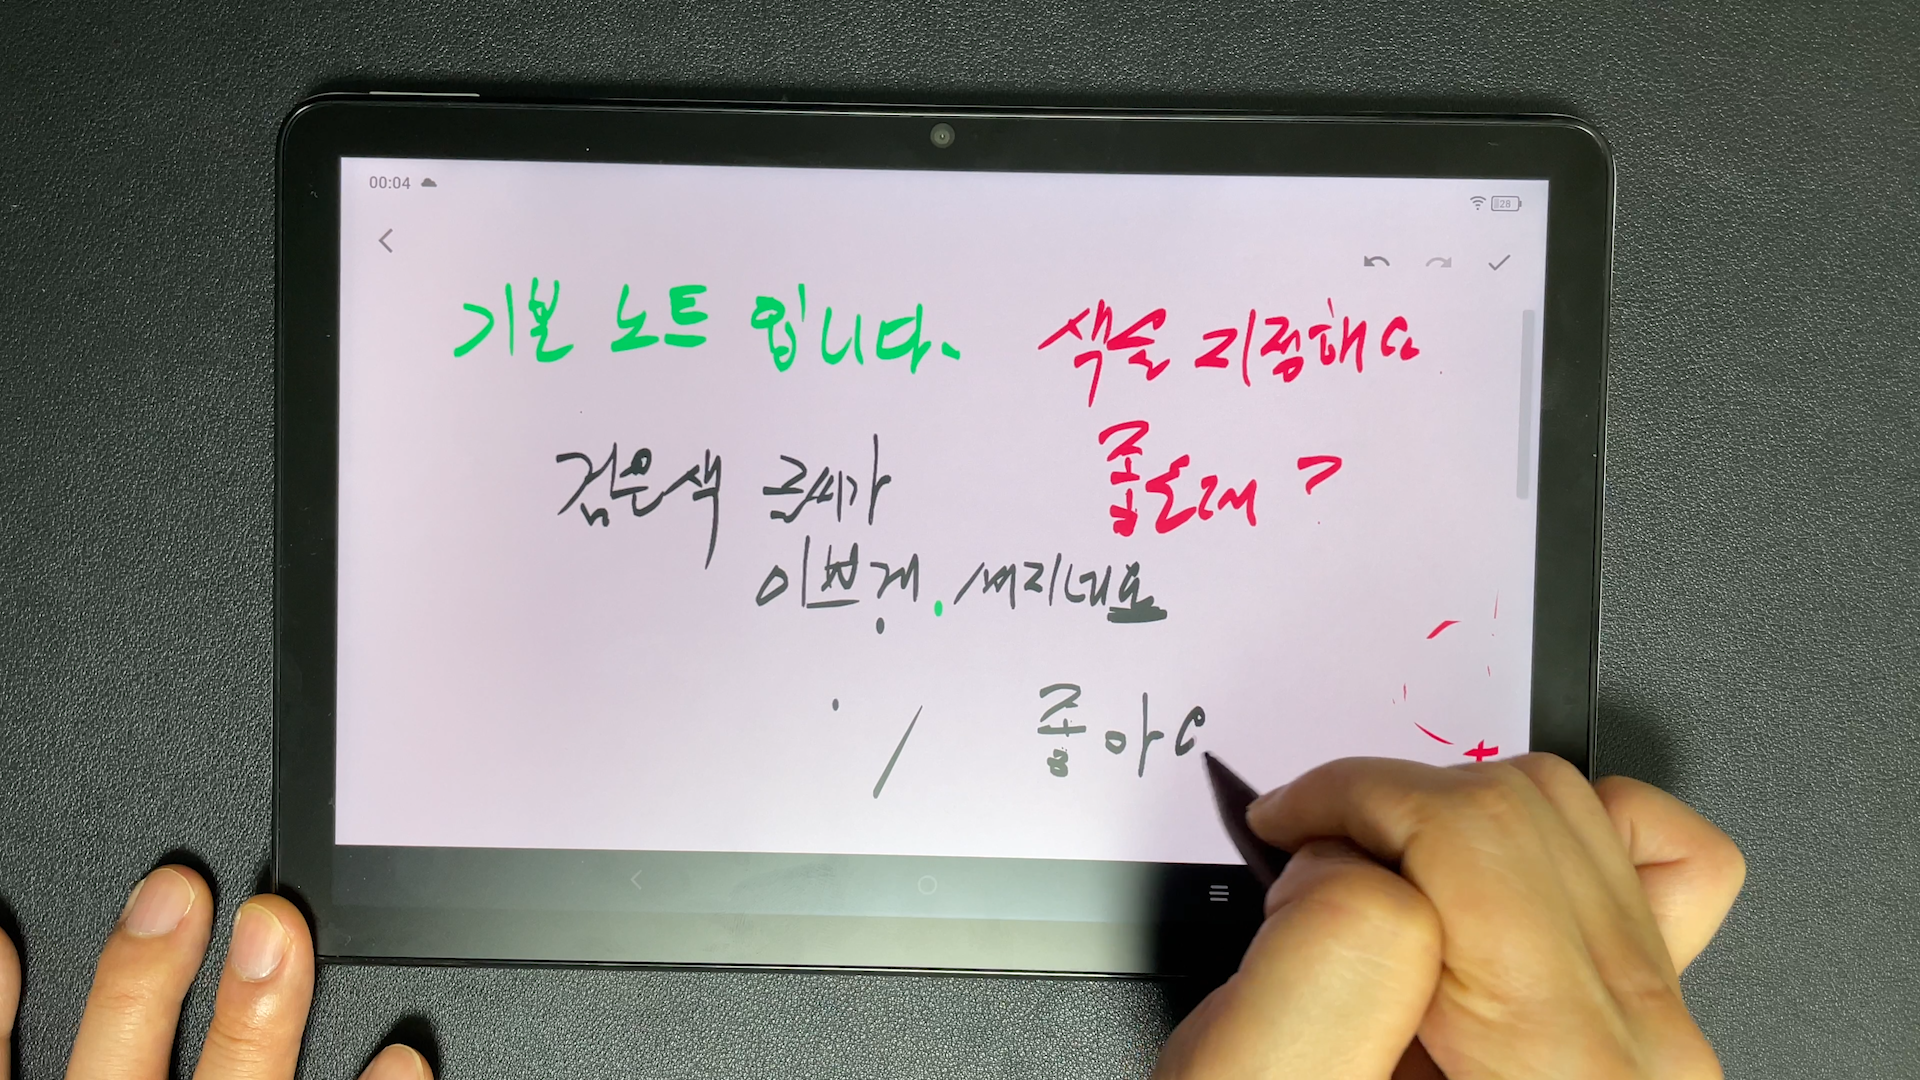 00:04
28
기본 노트 입니다.
색을 지정해요
좁을래?
검은색 글씨가
이쁘게 써지네요
좋아